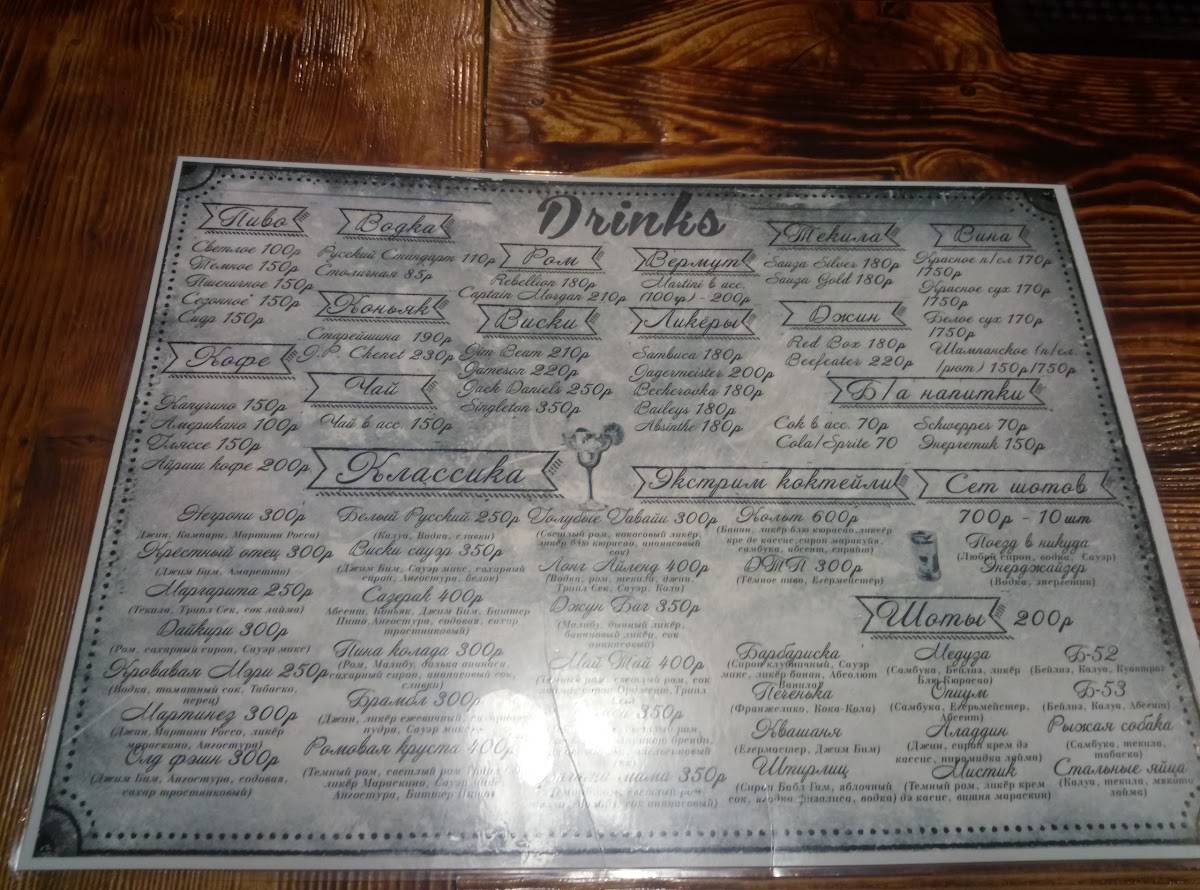 Drinks
Пиво
Светлое 100р
Темное 150р
Пшеничное 150р
Сезонное 150р
Сидр 150р
Кофе
Капучино 150р
Американо 100р
Гляссе 150р
Айриш кофе 200р
Водка
Русский Стандарт 110р
Столичная 85р
Коньяк
Старейшина 190р
J.P. Chenet 230р
Чай
Чай в асс. 150р
Ром
Rebellion 180р
Captain Morgan 210р
Виски
Jim Beam 210р
Jameson 220р
Jack Daniels 250р
Singleton 350р
Вермут
Martini в асс.
(100гр) - 200р
Ликёры
Sambuca 180р
Jagermeister 200р
Becherovka 180р
Baileys 180р
Absinthe 180р
Текила
Sauza Silver 180р
Sauza Gold 180р
Джин
Red Box 180р
Beefeater 220р
Вина
Красное п/сл 170р
/750р
Красное сух 170р
/750р
Белое сух 170р
/750р
Шампанское (п/сл.
/рют) 150р/750р
Б/а напитки
Сок в асс. 70р
Cola/Sprite 70
Schweppes 70р
Энергетик 150р
Классика
Негрони 300р
(Джин, Кампари, Мартини Россо)
Крёстный отец 300р
(Джим Бим, Амаретто)
Маргарита 250р
(Текила, Трипл Сек, сок лайма)
Дайкири 300р
(Ром, сахарный сироп, Сауэр микс)
Кровавая Мэри 250р
(Водка, томатный сок, Табаско,
перец)
Мартинез 300р
(Джин, Мартини Россо, ликёр
мараскино, Ангостура)
Олд фэшн 300р
(Джим Бим, Ангостура, содовая,
сахар тростниковый)
Белый Русский 250р
(Калуа, Водка, сливки)
Виски сауэр 350р
(Джим Бим, Сауэр микс, сахарный
сироп, Ангостура, белок)
Сазерак 400р
Абсент, Коньяк, Джим Бим, Биттер
Пишо, Ангостура, содовая, сахар
тростниковый)
Пина колада 300р
(Ром, Малибу, долька ананаса,
сахарный сироп, ананасовый сок,
сливки)
Брамбл 300р
(Джин, ликёр ежевичный,
пудра, Сауэр микс)
Ромовая круста 400р
(Темный ром, светлый ром
ликёр Мараскино, Сауэр
Ангостура, Биттер
Голубые Гавайи 300р
(Светлый ром, кокосовый ликёр,
ликёр блю кюрасао, ананасовый
сок)
Лонг Айленд 400р
(Водка, ром, текила, джин,
Трипл Сек, Сауэр, Кола)
Джун Баг 350р
(Малибу, дынный ликёр,
банановый ликёр, сок
ананасовый)
Май Тай 400р
350р
мама 350р
Экстрим коктейли
Кольт 600р
(Банан, ликёр блю кюрасао, ликёр
кре де кассис, сироп маракуйя,
самбука, абсент, спрайт)
ДТП 300р
(Тёмное пиво, Егермейстер)
Сет шотов
700р - 10 шт
Поезд в никуда
(Любой сироп, водка, Сауэр)
Энерджайзер
(Водка, энергетик)
Шоты 200р
Барбариска
(Сироп клубничный, Сауэр
микс, ликёр банан, Абсолют
Ванила)
Печенька
(Франжелико, Кока-Кола)
Квашаня
(Егермастер, Джим Бим)
Штирлиц
(Сироп Бабл Гам, яблочный
сок, ягодка физалиса, водка)
Медуза
(Самбука, Бейлиз, ликёр
Блю Кюрасао)
Опиум
(Самбука, Егермейстер,
Абсент)
Аладдин
(Джин, сироп крем дэ
кассис, пирамидка лайма)
Мистик
(Темный ром, ликёр крем
дэ касис, вишня мараскин)
Б-52
(Бейлиз, Калуа, Куантро)
Б-53
(Бейлиз, Калуа, Абсент)
Рыжая собака
(Самбука, текила,
табаско)
Стальные яйца
(Калуа, текила, мякоть
лайма)